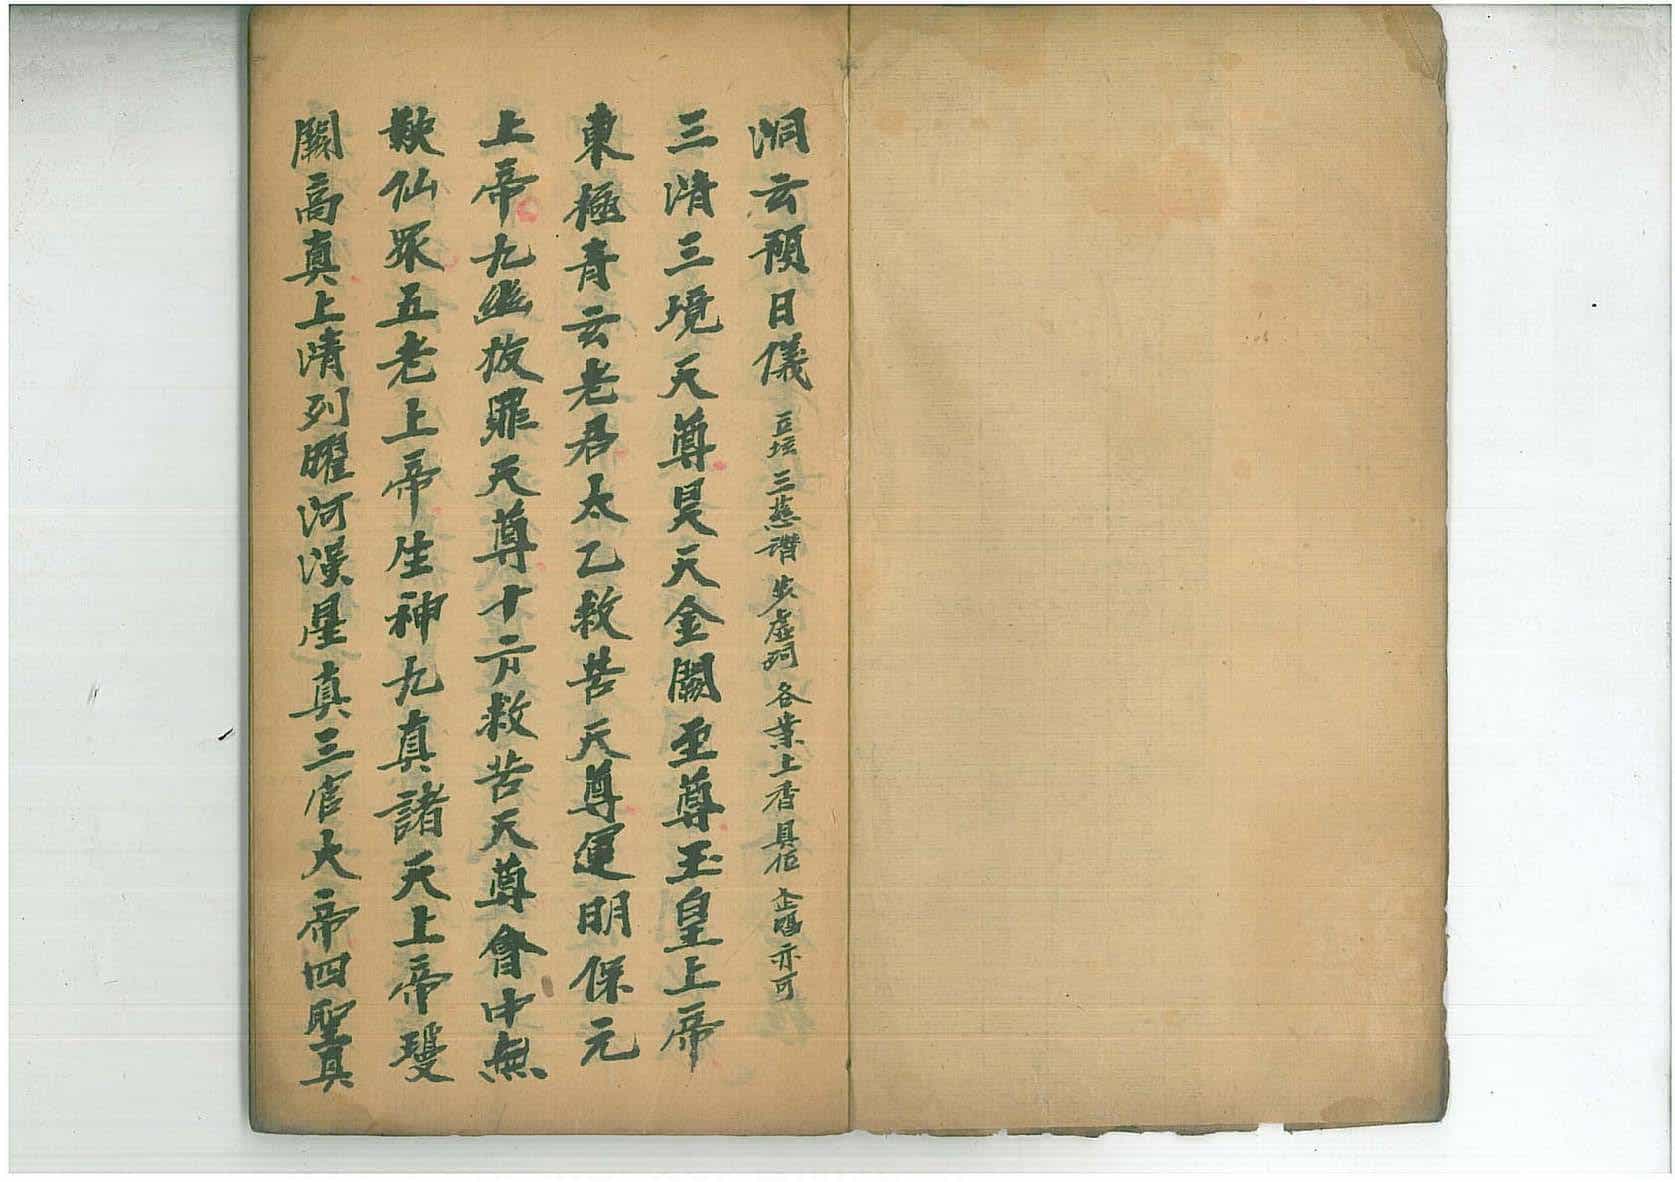 洞云預日儀 立坛三慈讚 步虛词 各業上香具位 企雨亦可
三清三境天尊昊天金闕至尊玉皇上帝
東極青云老君太乙救苦天尊運明保元
上帝九幽拔罪天尊十方救苦天尊會中無
歎仙眾五老上帝生神九真諸天上帝雙
闕高真上清列曜河漢星真三官大帝四聖真